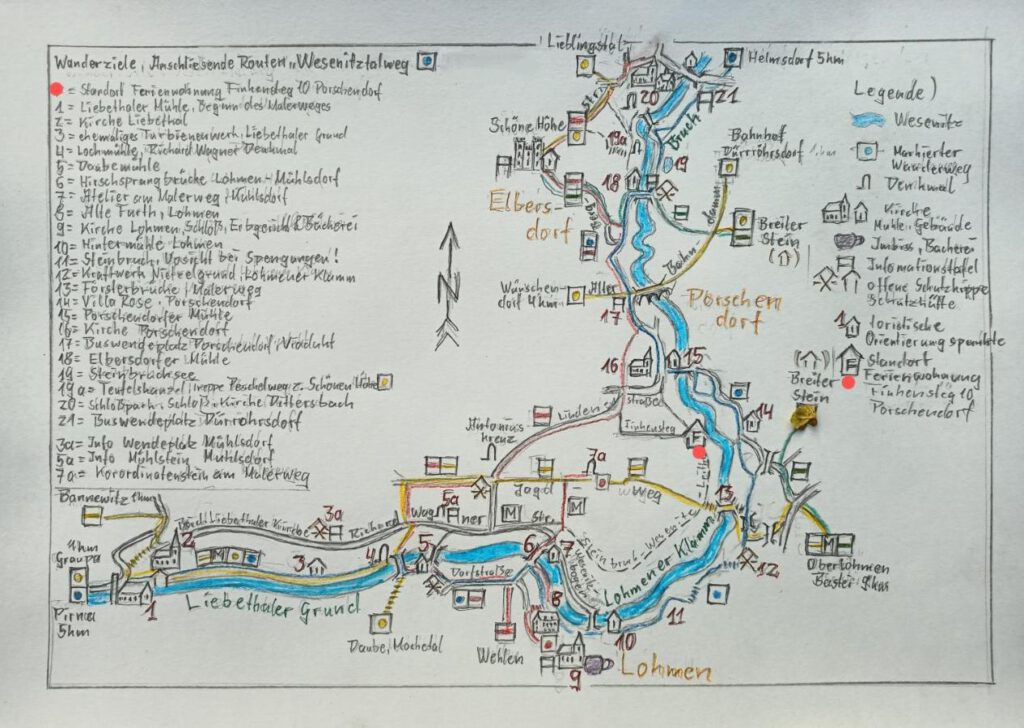 Wanderziele, Anschliesende Routen „Wesenitztalweg
= Standort Ferienwohnung Finkensteg 10 Porschendorf
1 = Liebethaler Mühle, Beginn des Malerweges
2 = Kirche Liebethal
3 = ehemaliges Turbienenwerk, Liebethaler Grund
4 = Lochmühle, Richard Wagner Denkmal
5 = Daubemühle
6 = Hirschsprungbrücke Lohmen - Mühlsdorf
7 = Atelier am Malerweg, Mühlsdorf
8 = Alte Furth, Lohmen
9 = Kirche Lohmen, Schloß, Erbgericht & Bäckerei
10 = Hintermühle Lohmen
11 = Steinbruch, Vosicht bei Spengungen!
12 = Kraftwerk Niezelgrund, Lohmener Klamm
13 = Försterbrücke, Malerweg
14 = Villa Rose, Porschendorf
15 = Porschendorfer Mühle
16 = Kirche Porschendorf
17 = Buswendeplatz Porschendorf, Viadukt
18 = Elbersdorfer Mühle
19 = Steinbruchsee
19a = Teufelskanzel, Treppe Peschelweg z. Schönen Höhe
20 = Schloßpark, Schloß, Kirche Dittersbach
21 = Buswendeplatz Dürrröhrsdorf
3a = Info Wendeplatz Mühlsdorf
5a = Info Mühlstein Mühlsdorf
7a = Korordinatenstein am Malerweg
Lieblingstal
Helmsdorf 5km
20
21
Schöne Höhe
19a
Bruch
19
Bahnhof
Dürrröhrsdorf 1km
18
Elbers
dorf
Breiter
Stein
Bahn
damm
Wünschen
dorf 4km
Alter
17
Porschen
dorf
16
15
Straße
Linden
Finkensteg
F
14
Breiter
Stein
Antonius
Kreuz
7a
Jagd
Weg
13
Bannewitz 11km
Liebethaler
3a
Richard
Wag
5a
ner
M
Str.
M
2
M
4km
Graupa
Pirna
5km
1
3
4
5
6
7
Dorfstraße
Liebethaler Grund
8
Lohmener Klamm
12
Oberlohmen
Bastei 9km
M
11
10
Daube, Mockethal
Wehlen
9
Lohmen
N
Legende)
Wesenitz
Markierter
Wanderweg
Denkmal
Kirche
Mühle, Gebäude
Imbiss, Bäckerei
Infomationstafel
offene Schutzhippe
Schutzhütte
1
toristische
Orientierung spunkte
F
Standort
Ferienwohnung
Finkensteg 10
Porschendorf